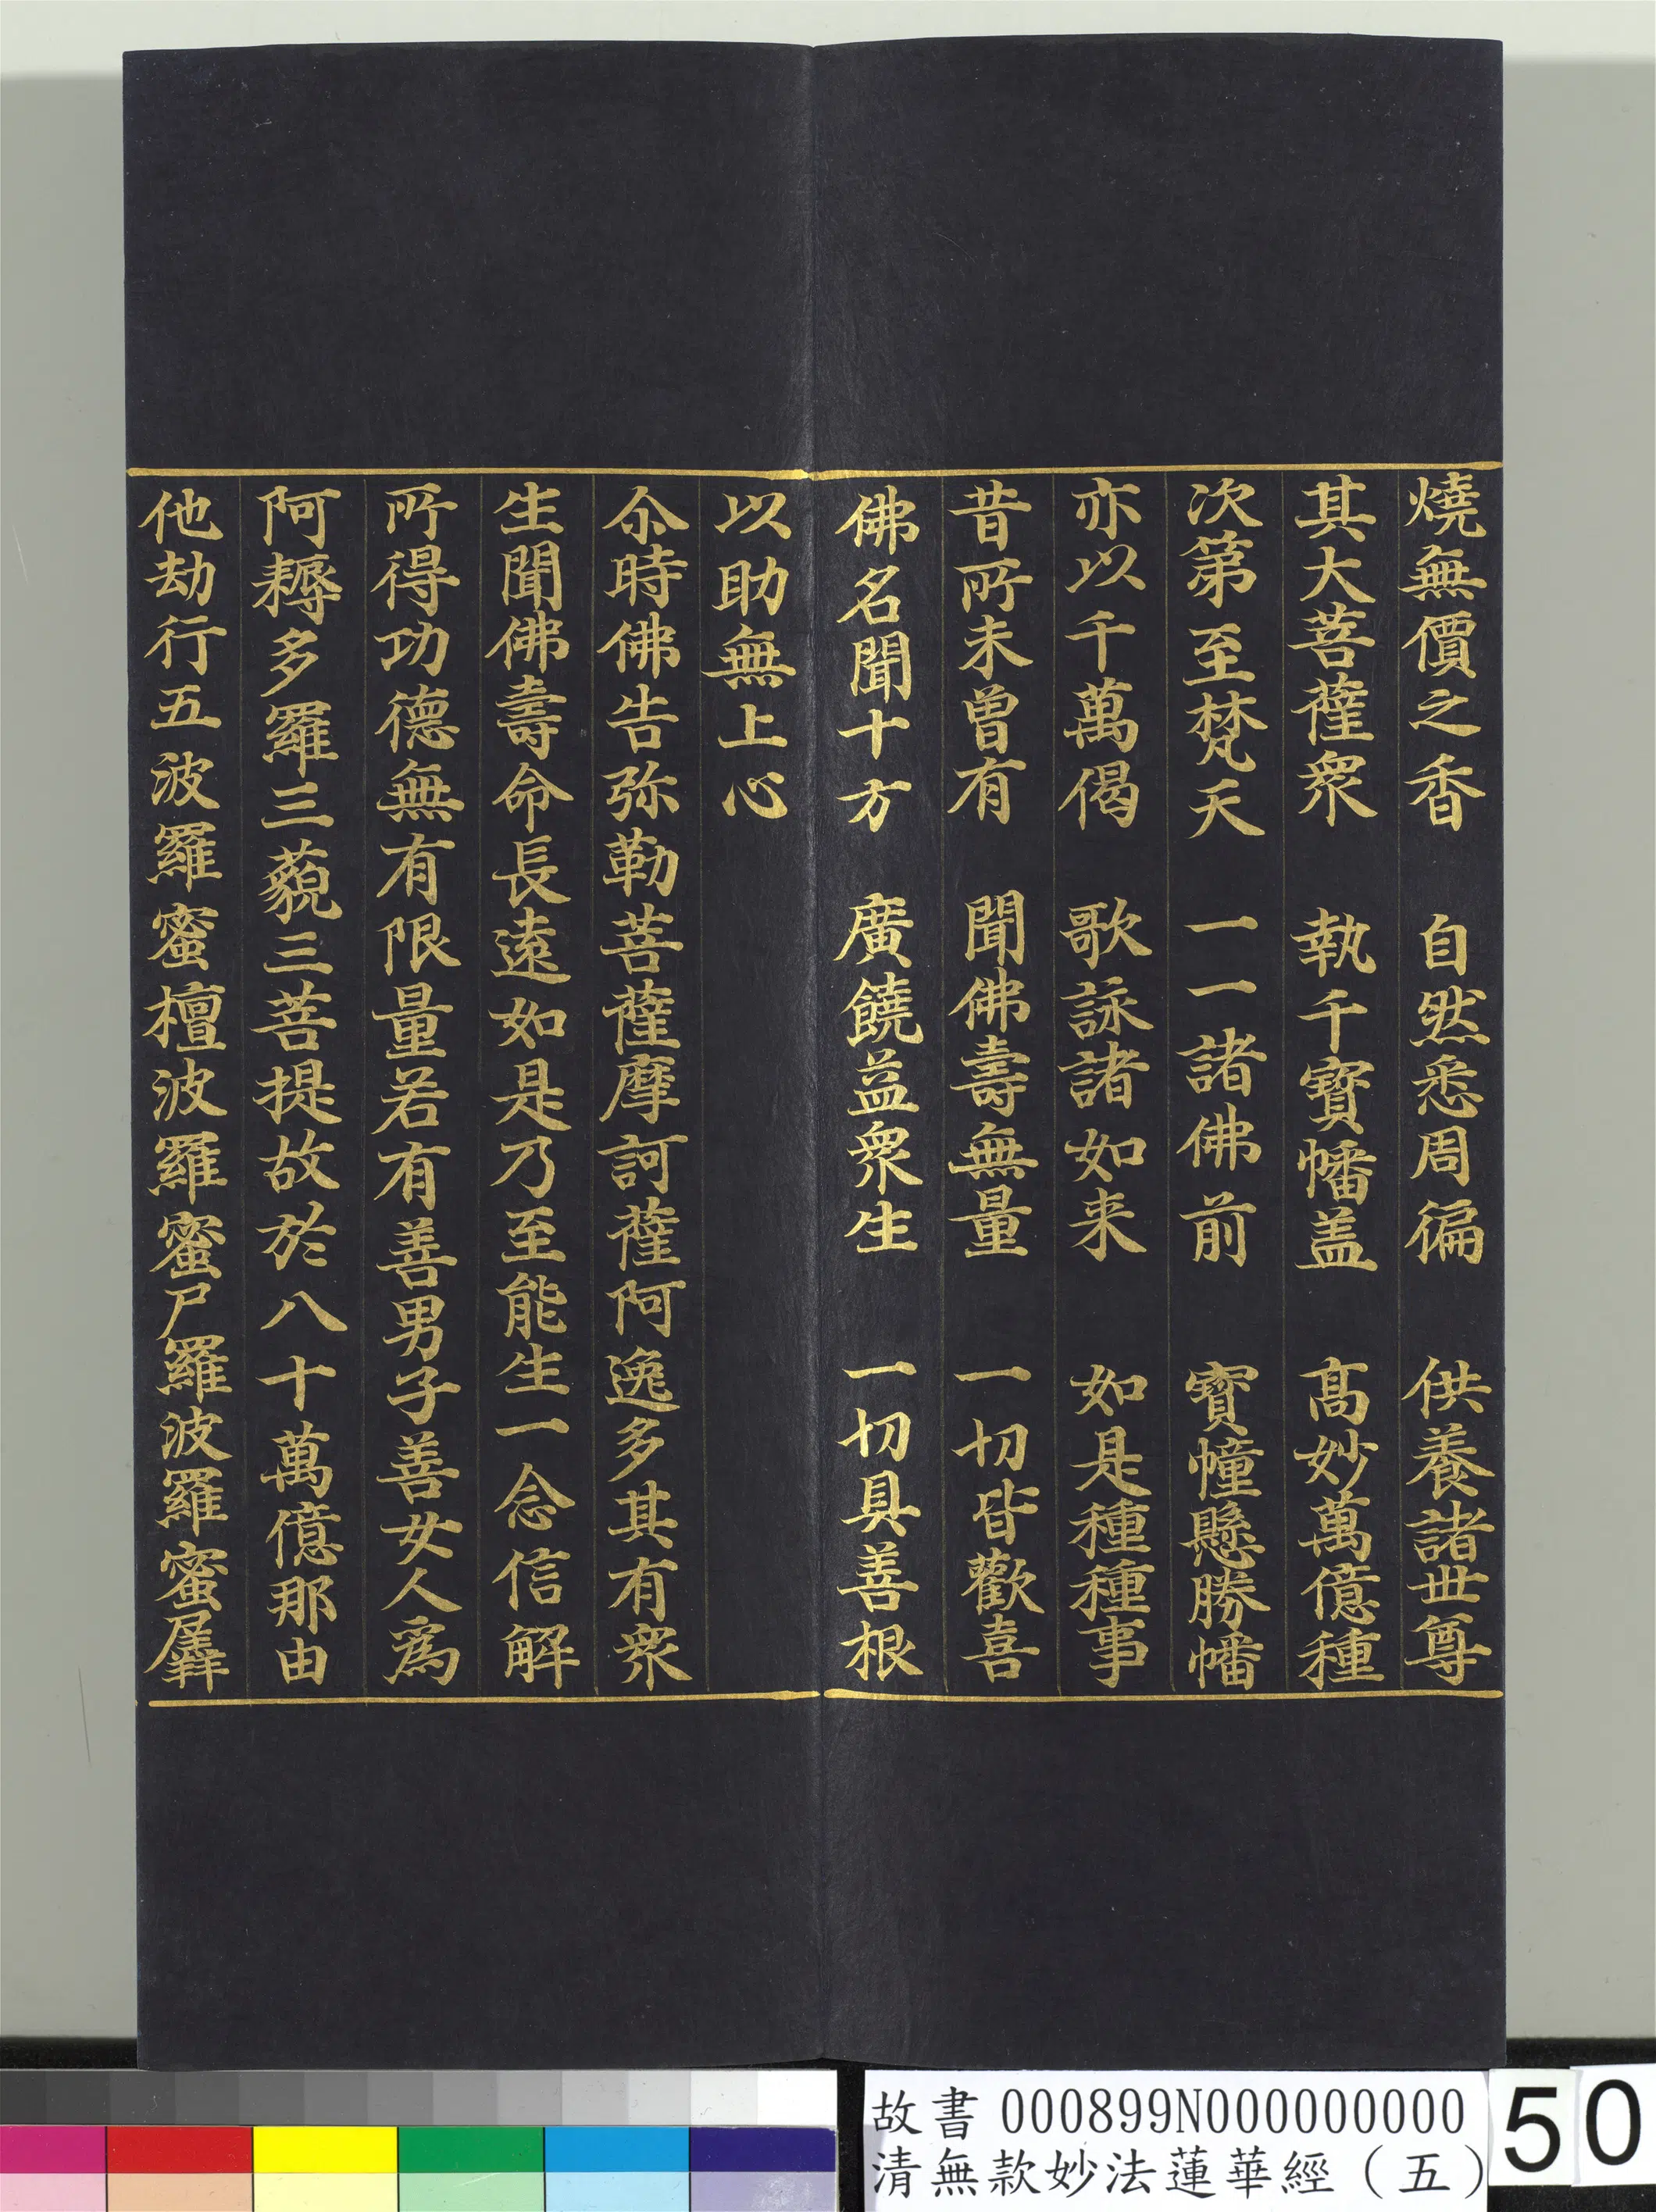 燒無價之香　自然悉周徧　供養諸世尊
其大菩薩衆　執千寶幡盖　髙妙萬億種
次第至梵天　一一諸佛前　寶幢懸勝幡
亦以千萬偈　歌詠諸如来　如是種種事
昔所未曾有　聞佛壽無量　一切皆歡喜
佛名聞十方　廣饒益衆生　一切具善根
以助無上心
尒時佛告弥勒菩薩摩訶薩阿逸多其有衆
生聞佛壽命長遠如是乃至能生一念信解
所得功德無有限量若有善男子善女人爲
阿耨多羅三藐三菩提故於八十萬億那由
他劫行五波羅蜜檀波羅蜜尸羅波羅蜜羼
故書 000899N000000000
清無款妙法蓮華經（五）
50